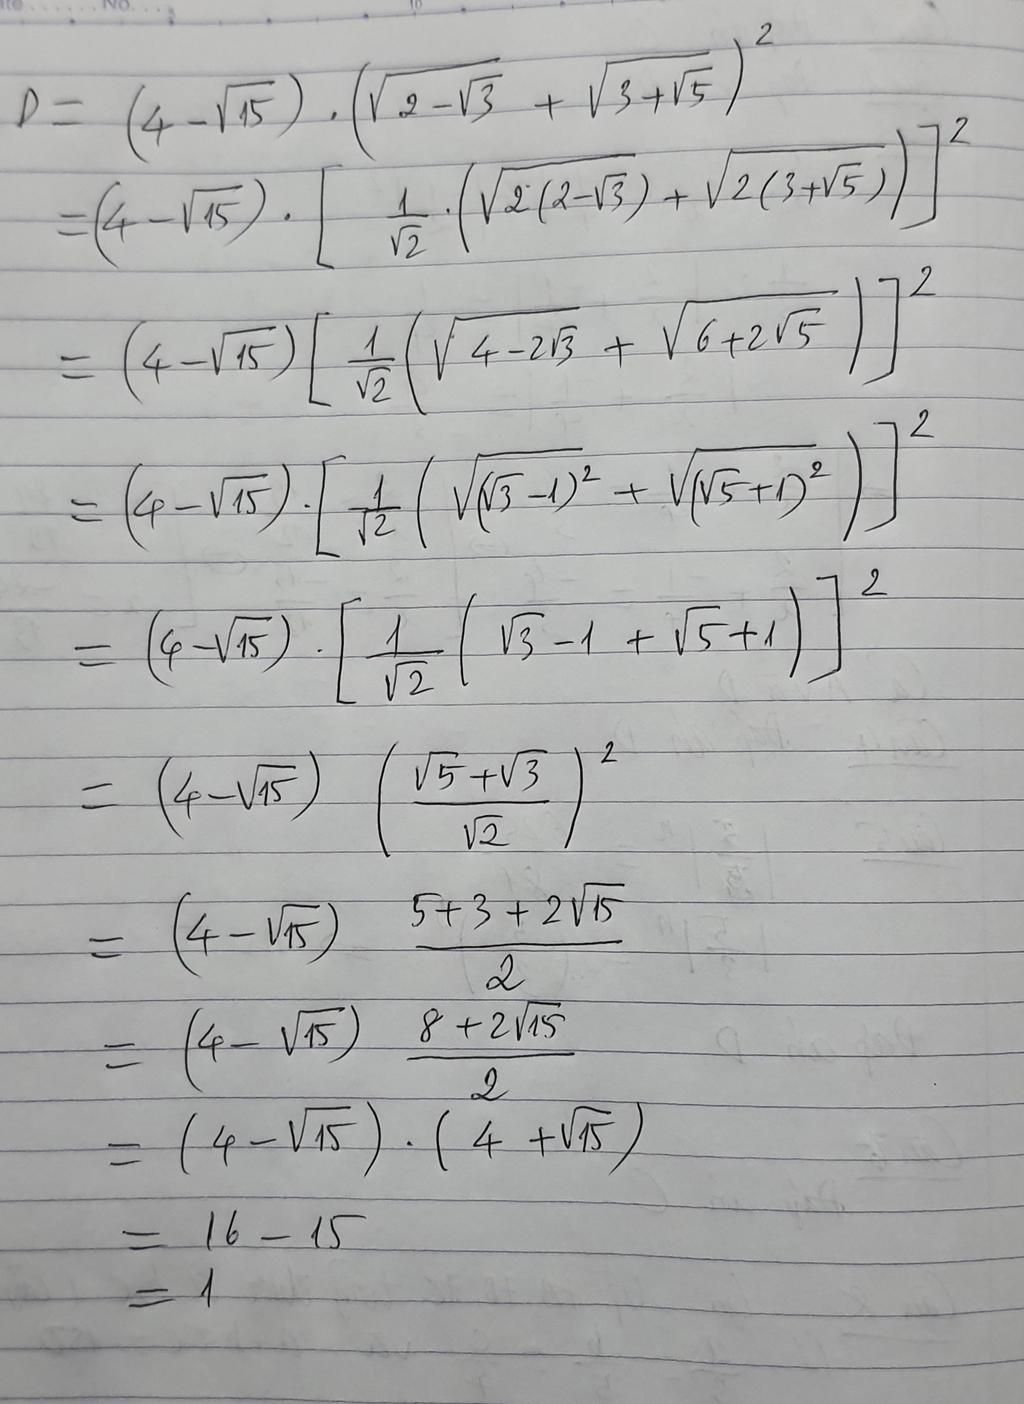 No.
10
D = (4 - √15) . (√(2 - √3) + √(3 + √5))²
= (4 - √15) . [1/√2 . (√(2(2 - √3)) + √(2(3 + √5)))]²
= (4 - √15) [1/√2 (√(4 - 2√3) + √(6 + 2√5))]²
= (4 - √15) . [1/√2 (√((√3 - 1)²) + √((√5 + 1)²))]²
= (4 - √15) . [1/√2 (√3 - 1 + √5 + 1)]²
= (4 - √15) ((√5 + √3)/√2)²
= (4 - √15) (5 + 3 + 2√15)/2
= (4 - √15) (8 + 2√15)/2
= (4 - √15) . (4 + √15)
= 16 - 15
= 1